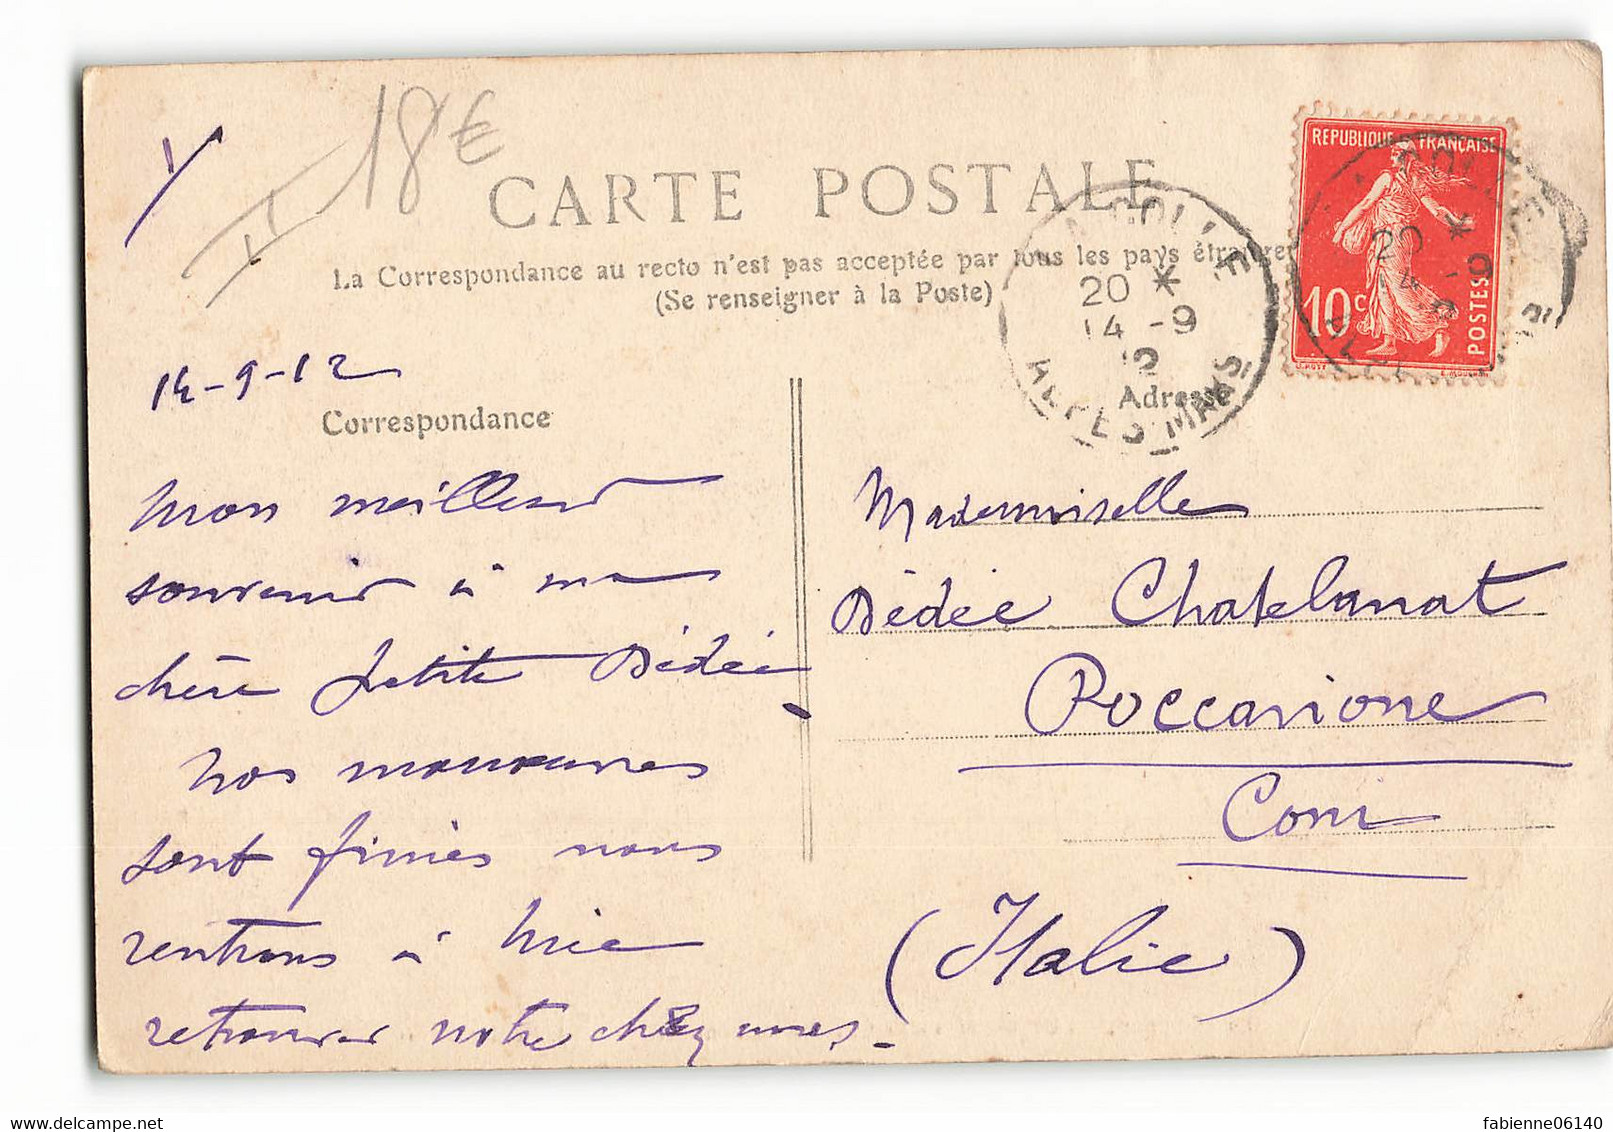 18€
CARTE POSTALE
La Correspondance au recto n'est pas acceptée par tous les pays étrangers
(Se renseigner à la Poste)
20 *
14 -9
12
ALPES MMES
REPUBLIQUE FRANÇAISE
10c
POSTES
20 *
14 -9
14-9-12
Correspondance
Adresse
Mon meilleur
souvenir à ma
chère petite Dédée
Nos manœuvres
sont finies nous
rentrons à Nice
retrouver notre chez nous.
Mademoiselle
Dédée Chatelanat
Roccavione
Coni
(Italie)
fabienne06140